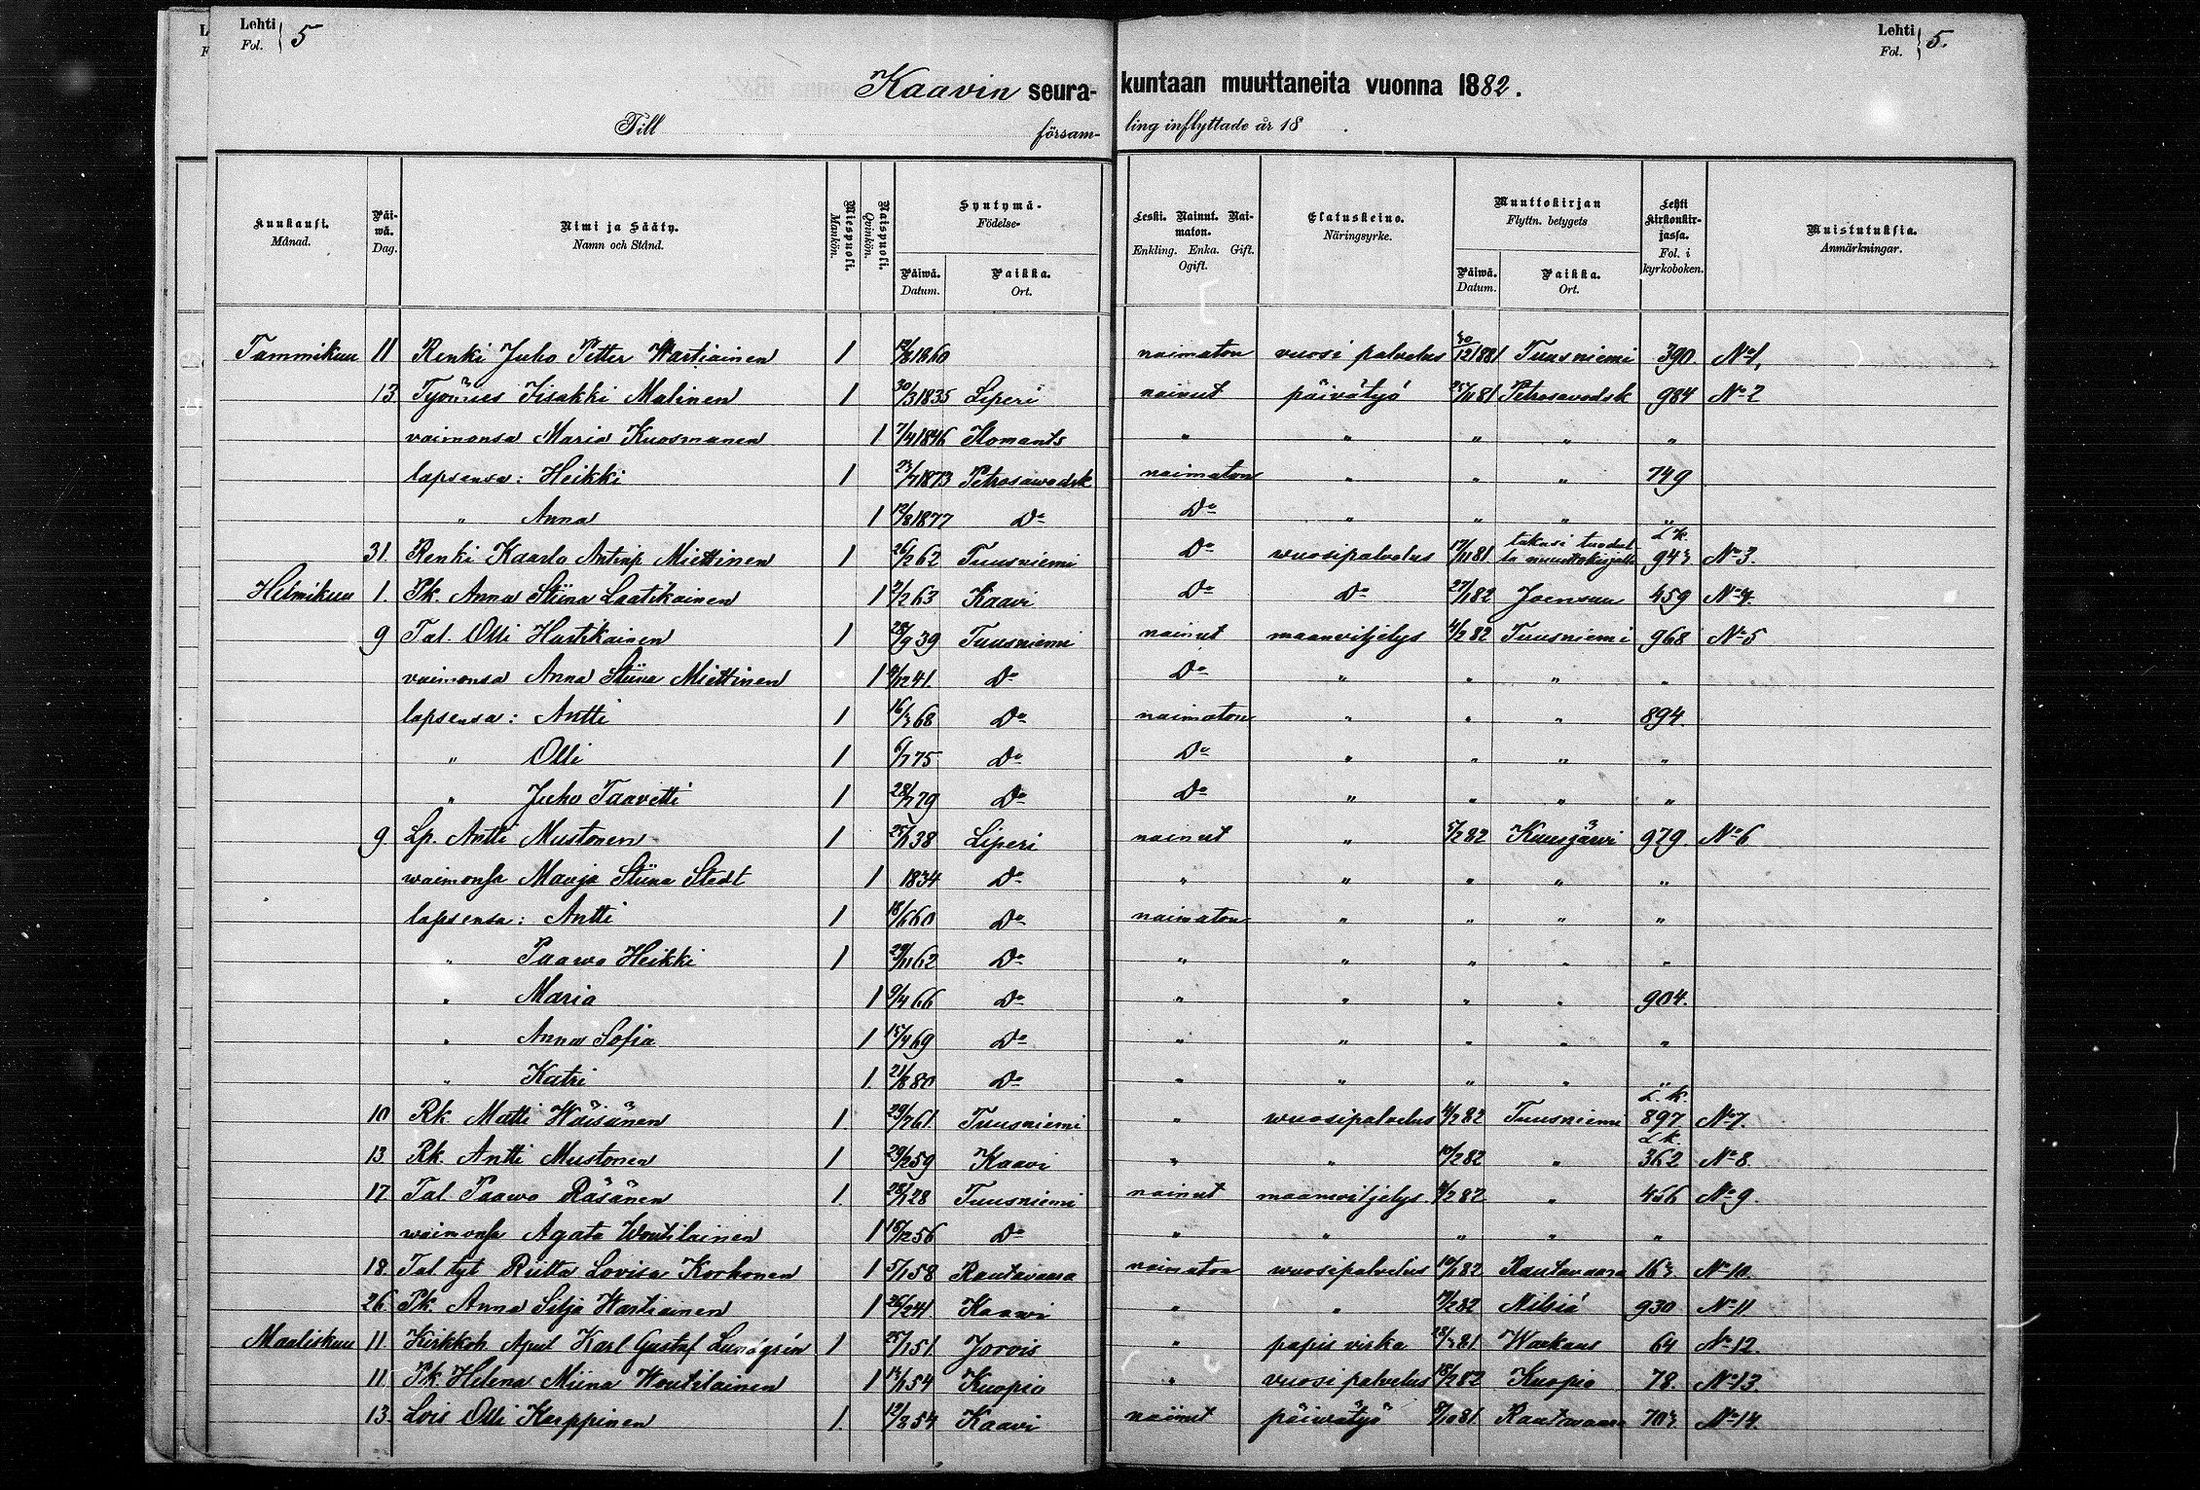 Lehti
Fol. 5
Lehti
Fol. 5.
Kaavin seura- kuntaan muuttaneita vuonna 1882.
Till försam- ling inflyttade år 18 .
Kuukausi. Månad. Päi-wä. Dag. Nimi ja Sääty. Namn och Stånd. Miespuoli. Mankön. Naispuoli. Qvinkön. Syntymä- Födelse- Päiwä. Datum. Paikka. Ort. Leski. Nainut. Nai-maton. Enkling. Enka. Gift. Ogift. Elatuskeino. Näringsyrke. Muuttokirjan Flyttn. betygets Päiwä. Datum. Paikka. Ort. Lehti kirkonkir-jassa. Fol. i kyrkoboken. Muistutuksia. Anmärkningar.
Tammikuu 11 Renki Juho Petter Wartiainen 1 naimaton vuosi palvelus 30/12 1881 Tuusniemi 390 No 1,
13. Isakki Malinen 1 30/3 1835 Liperi nainut päivätyö 25/11 81 Petrosavodsk 984 No 2
vaimonsa Maria Kuosmanen 1 7/4 1846 Ilomants " " " " "
lapsensa: Heikki 1 23/7 1873 Petrosawodsk naimaton " " " 749
" Anna 1 12/8 1877 Do Do " " " "
31. Renki Kaarlo Antinp Miettinen 1 26/2 62 Tuusniemi Do wuosipalvelus 17/11 81 takasi L.k. 943 No 3.
Helmikuu 1. Pk. Anna Stiina Laatikainen 1 2/2 63 Kaavi Do Do 27/1 82 Joensuu 459 No 4.
9 Tal. Olli Hartikainen 1 28/9 39 Tuusniemi nainut maanviljelys 4/2 82 Tuusniemi 968 No 5
vaimonsa Anna Stiina Miettinen 1 /12 41. Do Do " " " "
lapsensa: Antti 1 16/3 68 Do naimaton " " " 894.
" Olli 1 6/7 75 Do Do " " " "
" Juho Taavetti 1 28/7 79 Do Do " " " "
9 Lp. Antti Mustonen 1 25/1 38 Liperi nainut " 5/2 82 Kuusjärvi 979. No 6
waimonsa Marja Stiina Stedt 1 1834 Do " " " " "
lapsensa: Antti 1 18/6 60 Do naimaton " " " "
" Paawo Heikki 1 29/11 62 Do " " " " "
" Maria 1 9/4 66 Do " " " " 904.
" Anna Sofia 1 15/4 69 Do " " " " "
" Katri 1. 21/8 80 Do " " " " "
10 Rk. Matti Wäisänen 1 29/2 61. Tuusniemi " wuosipalvelus 4/2 82 Tuusniemi L.k. 897 No 7.
13 Rk. Antti Mustonen 1 23/2 59 Kaavi " " 10/2 82 " L.k. 362 No 8.
17 Tal. Paawo Räsänen 1. 28/1 28 Tuusniemi nainut maanviljelys 4/2 82 " 456 No 9.
waimonsa Agata Woutilainen 1 18/2 56 Do " " " " "
18. Tal. tyt. Riitta Lovisa Korhonen 1 5/1 58 Rautavaara naimaton wuosipalvelus 10/1 82 Rautavaara 163 No 10.
26. Pk. Anna Silja Wartiainen 1 26/2 41. Kaawi " " 7/2 82 Nilsiä 930 No 11
Maaliskuu 11. Kirkkoh. Apul. Karl Gustaf 1 25/1 51. Jorois " papis virka 28/3 81 Warkaus 64 No 12.
11 Pk. Helena Miina Woutilainen 1 14/1 54 Kuopio " vuosi palvelus 18/2 82 Kuopio 78. No 13.
13. Lois Olli Karppinen 1. 12/8 54 Kaavi nainut päivätyö 8/10 81 Rautavaara 703 No 14.